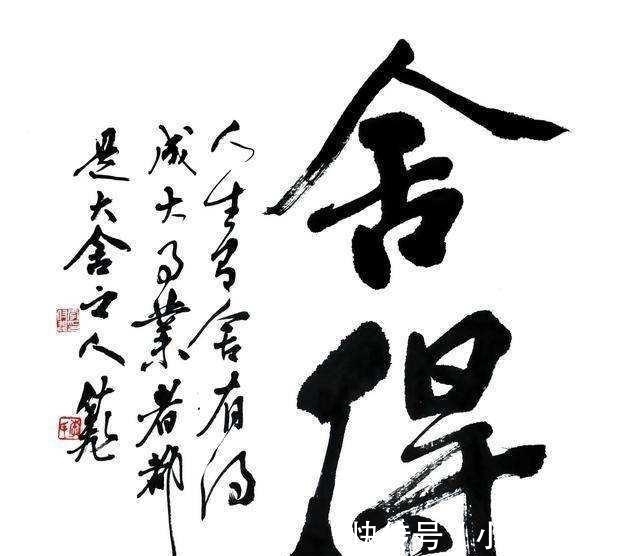 舍得
人生有舍有得
成大事业者都
是大舍之人
快传号
小